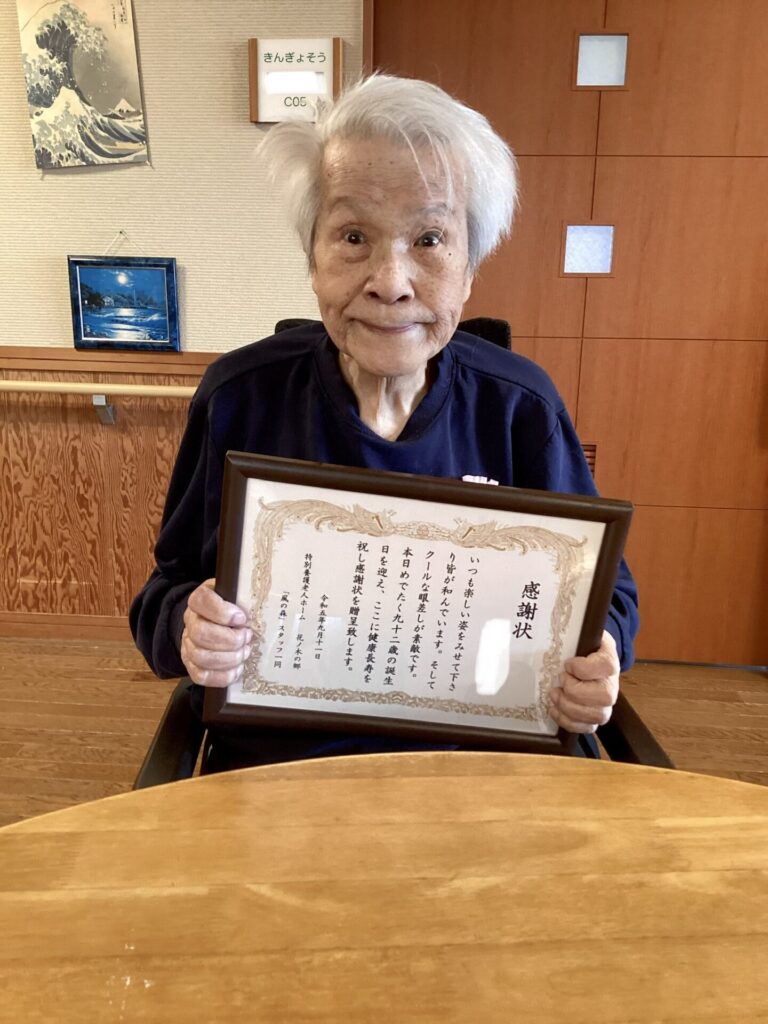 きんぎょそう
C05
感謝状
いつも楽しい姿をみせて下さ
り皆が和んでいます。そして
クールな眼差しが素敵です。
本日めでたく九十二歳の誕生
日を迎え、ここに健康長寿を
祝し感謝状を贈呈致します。
令和五年九月十一日
特別養護老人ホーム 花ノ木の郷
「風の森」スタッフ一同